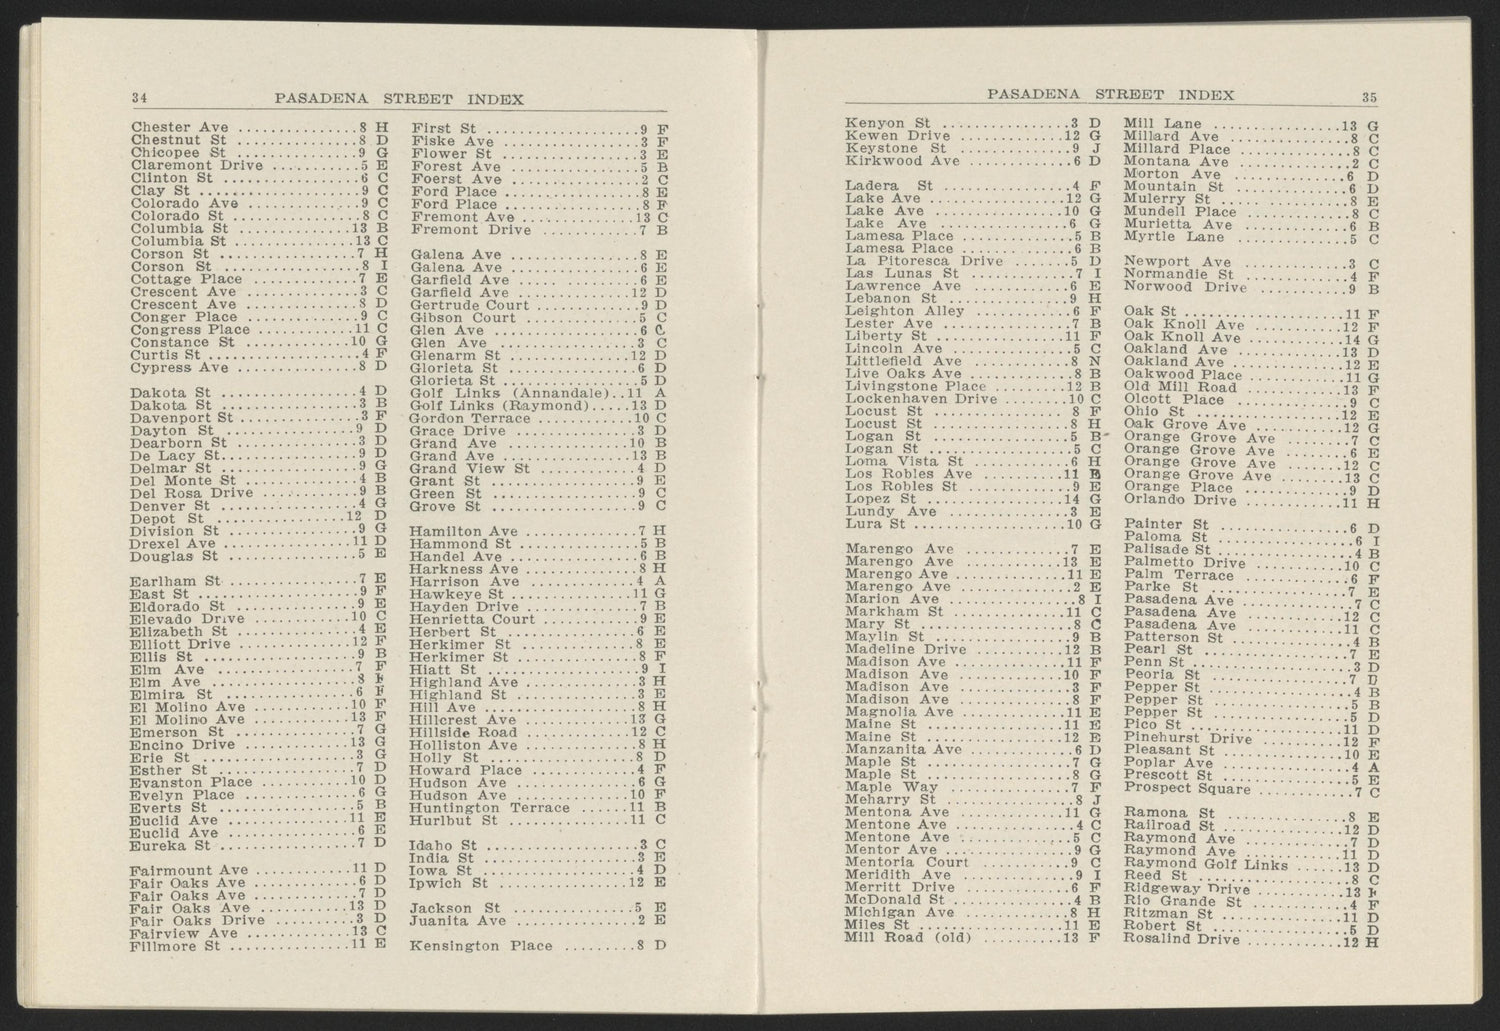 34 PASADENA STREET INDEX
Chester Ave ...............8 H
Chestnut St ...............8 D
Chicopee St ...............9 G
Claremont Drive ...........5 E
Clinton St ................6 C
Clay St ...................9 C
Colorado Ave ..............9 C
Colorado St ...............8 C
Columbia St ..............13 B
Columbia St ..............13 C
Corson St .................7 H
Corson St .................8 I
Cottage Place .............7 E
Crescent Ave ..............3 C
Crescent Ave ..............8 D
Conger Place ..............9 C
Congress Place ...........11 C
Constance St .............10 G
Curtis St .................4 F
Cypress Ave ...............8 D
Dakota St .................4 D
Dakota St .................3 B
Davenport St ..............3 F
Dayton St .................9 D
Dearborn St ...............3 D
De Lacy St................9 D
Delmar St .................9 G
Del Monte St ..............4 B
Del Rosa Drive ............9 B
Denver St .................4 G
Depot St .................12 D
Division St ...............9 G
Drexel Ave ...............11 D
Douglas St ................5 E
Earlham St................7 E
East St ...................9 F
Eldorado St ...............9 E
Elevado Drive ............10 C
Elizabeth St ..............4 E
Elliott Drive ............12 F
Ellis St ..................9 B
Elm Ave ...................7 F
Elm Ave ...................8 F
Elmira St .................6 F
El Molino Ave ............10 F
El Molino Ave ............13 F
Emerson St ................7 G
Encino Drive .............13 G
Erie St ...................3 G
Esther St .................7 D
Evanston Place ...........10 D
Evelyn Place ..............6 G
Everts St .................5 B
Euclid Ave ...............11 E
Euclid Ave ................6 E
Eureka St .................7 D
Fairmount Ave ............11 D
Fair Oaks Ave .............6 D
Fair Oaks Ave .............7 D
Fair Oaks Ave ............13 D
Fair Oaks Drive ...........3 D
Fairview Ave .............13 C
Fillmore St ..............11 E
First St ..................9 F
Fiske Ave .................3 F
Flower St .................3 E
Forest Ave ................5 B
Foerst Ave ................2 C
Ford Place ................8 E
Ford Place ................8 F
Fremont Ave ..............13 C
Fremont Drive .............7 B
Galena Ave ................8 E
Galena Ave ................6 E
Garfield Ave ..............6 E
Garfield Ave .............12 D
Gertrude Court ............9 D
Gibson Court ..............5 C
Glen Ave ..................6 C
Glen Ave ..................3 C
Glenarm St ...............12 D
Glorieta St ...............6 D
Glorieta St ...............5 D
Golf Links (Annandale)..11 A
Golf Links (Raymond).....13 D
Gordon Terrace ...........10 C
Grace Drive ...............3 D
Grand Ave ................10 B
Grand Ave ................13 B
Grand View St .............4 D
Grant St ..................9 E
Green St ..................9 C
Grove St ..................9 C
Hamilton Ave ..............7 H
Hammond St ................5 B
Handel Ave ................6 B
Harkness Ave ..............8 H
Harrison Ave ..............4 A
Hawkeye St ...............11 G
Hayden Drive ..............7 B
Henrietta Court ...........9 E
Herbert St ................6 E
Herkimer St ...............8 E
Herkimer St ...............8 F
Hiatt St ..................9 I
Highland Ave ..............3 H
Highland St ...............3 E
Hill Ave ..................8 H
Hillcrest Ave ............13 G
Hillside Road ............12 C
Holliston Ave .............8 H
Holly St ..................8 D
Howard Place ..............4 F
Hudson Ave ................6 G
Hudson Ave ...............10 F
Huntington Terrace .......11 B
Hurlbut St ...............11 C
Idaho St ..................3 C
India St ..................3 E
Iowa St ...................4 D
Ipwich St ................12 E
Jackson St ................5 E
Juanita Ave ...............2 E
Kensington Place ..........8 D
PASADENA STREET INDEX 35
Kenyon St .................3 D
Kewen Drive ..............12 G
Keystone St ...............9 J
Kirkwood Ave ..............6 D
Ladera St .................4 F
Lake Ave .................12 G
Lake Ave .................10 G
Lake Ave ..................6 G
Lamesa Place ..............5 B
Lamesa Place ..............6 B
La Pitoresca Drive ........5 D
Las Lunas St ..............7 I
Lawrence Ave ..............6 E
Lebanon St ................9 H
Leighton Alley ............6 F
Lester Ave ................7 B
Liberty St ...............11 F
Lincoln Ave ...............5 C
Littlefield Ave ...........8 N
Live Oaks Ave .............8 B
Livingstone Place ........12 B
Lockenhaven Drive ........10 C
Locust St .................8 F
Locust St .................8 H
Logan St ..................5 B
Logan St ..................5 C
Loma Vista St .............6 H
Los Robles Ave ...........11 E
Los Robles St .............9 E
Lopez St .................14 G
Lundy Ave .................3 E
Lura St ..................10 G
Marengo Ave ...............7 E
Marengo Ave ..............13 E
Marengo Ave ..............11 E
Marengo Ave ...............2 E
Marion Ave ................8 I
Markham St ...............11 C
Mary St ...................8 C
Maylin St .................9 B
Madeline Drive ...........12 B
Madison Ave ..............11 F
Madison Ave ..............10 F
Madison Ave ...............3 F
Madison Ave ...............8 F
Magnolia Ave .............11 E
Maine St .................11 E
Maine St .................12 E
Manzanita Ave .............6 D
Maple St ..................7 G
Maple St ..................8 G
Maple Way .................7 F
Meharry St ................8 J
Mentona Ave ..............11 G
Mentone Ave ...............4 C
Mentone Ave ...............5 C
Mentor Ave ................9 G
Mentoria Court ............9 C
Meridith Ave ..............9 I
Merritt Drive .............6 F
McDonald St ...............4 B
Michigan Ave ..............8 H
Miles St .................11 E
Mill Road (old) ..........13 F
Mill Lane ................13 G
Millard Ave ...............8 C
Millard Place .............8 C
Montana Ave ...............2 C
Morton Ave ................6 D
Mountain St ...............6 D
Mulerry St ................8 E
Mundell Place .............8 C
Murietta Ave ..............6 B
Myrtle Lane ...............5 C
Newport Ave ...............3 C
Normandie St ..............4 F
Norwood Drive .............9 B
Oak St ...................11 F
Oak Knoll Ave ............12 F
Oak Knoll Ave ............14 G
Oakland Ave ..............13 D
Oakland Ave ..............12 E
Oakwood Place ............11 G
Old Mill Road ............13 F
Olcott Place ..............9 C
Ohio St ..................12 E
Oak Grove Ave ............12 G
Orange Grove Ave ..........7 C
Orange Grove Ave ..........6 E
Orange Grove Ave .........12 C
Orange Grove Ave .........13 C
Orange Place ..............9 D
Orlando Drive ............11 H
Painter St ................6 D
Paloma St .................6 I
Palisade St ...............4 B
Palmetto Drive ...........10 C
Palm Terrace ..............6 F
Parke St ..................7 E
Pasadena Ave ..............7 C
Pasadena Ave .............12 C
Pasadena Ave .............11 C
Patterson St ..............4 B
Pearl St ..................7 E
Penn St ...................3 D
Peoria St .................7 D
Pepper St .................4 B
Pepper St .................5 B
Pepper St .................5 D
Pico St ..................11 D
Pinehurst Drive ..........12 F
Pleasant St ..............10 E
Poplar Ave ................4 A
Prescott St ...............5 E
Prospect Square ...........7 C
Ramona St .................8 E
Railroad St ..............12 D
Raymond Ave ...............7 D
Raymond Ave ..............11 D
Raymond Golf Links ......13 D
Reed St ...................8 C
Ridgeway Drive ...........13 F
Rio Grande St .............4 F
Ritzman St ...............11 D
Robert St .................5 D
Rosalind Drive ...........12 H